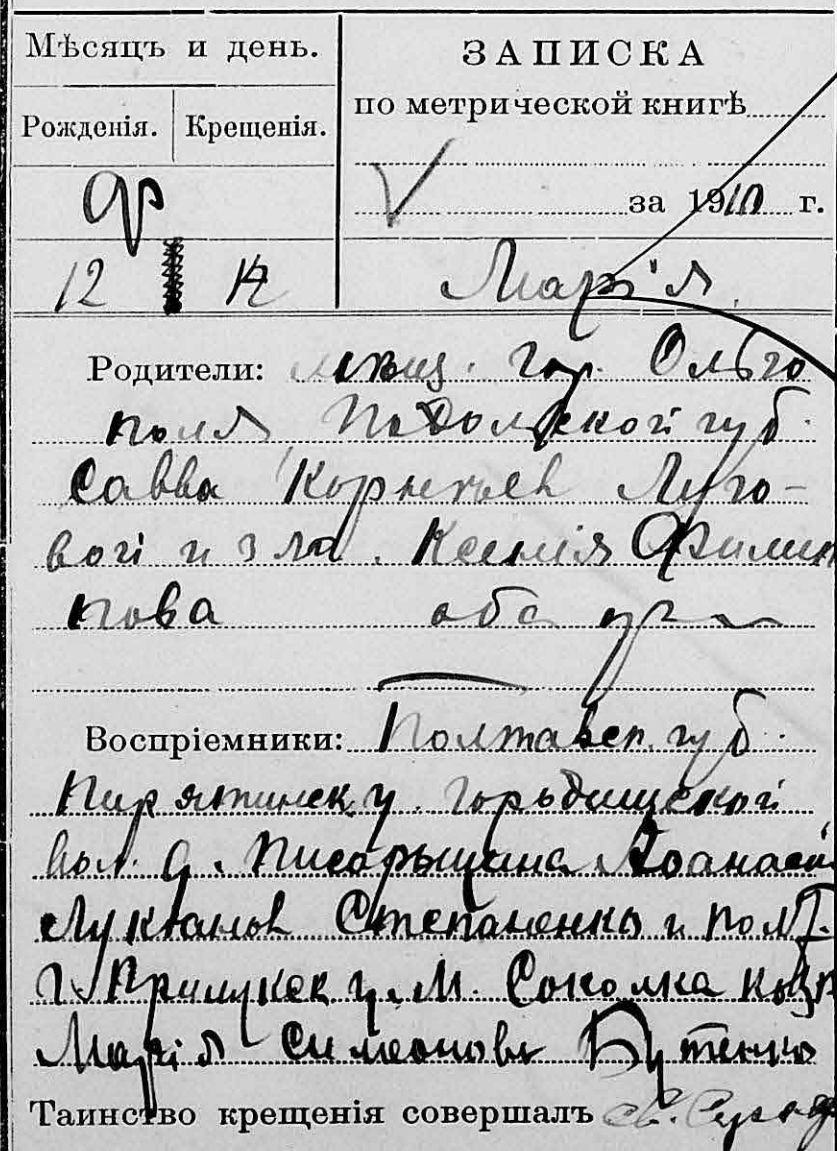 Мѣсяцъ и день.
Рожденія. Крещенія.
ЗАПИСКА
по метрической книгѣ
за 1910 г.
Ф
12
Марія
Родители: мѣщ. гор. Ольго
поля Подольской губ.
Савва Корнильев Луго-
вой и з
Ксенія Филип
пова оба
Воспріемники: Полтавск. губ.
Пирятинск. у. Горьдищской
вол. д. Писарьщина Аѳанасій
Лукіанов Степаненко и Полт.
г. Прилукск. у. М. Соколка коз
Марія Симеонова Бутенко
Таинство крещенія совершалъ св.